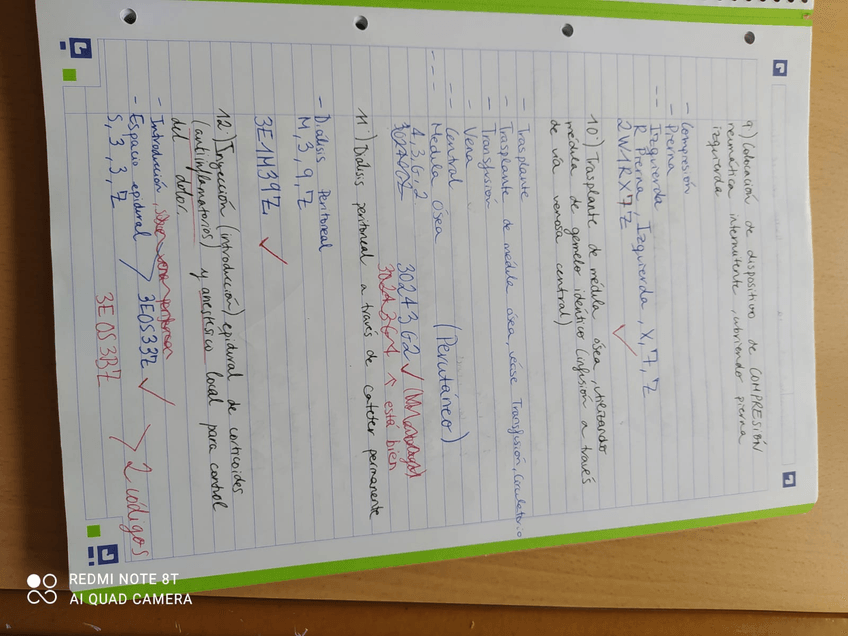 9) Colocación de dispositivo de COMPRESIÓN
neumática intermitente, cubriendo pierna
izquierda
- Compresión
- Pierna
-- Izquierda
R Pierna, Izquierda, X, 7, Z
2W1RX7Z ✓
10) Trasplante de médula ósea, utilizando
médula de gemelo idéntico (infusión a través
de vía venosa central)
- Trasplante
- Trasplante de médula ósea, véase Transfusión, Circulatorio
- Transfusión
- Vena
-- Central
--- Médula Ósea (Percutáneo)
4, 3, G, 2 30243G2 ✓
30243G4 ↖ está bien
11) Diálisis peritoneal a través de catéter permanente
- Diálisis Peritoneal
M, 3, 9, Z
3E1M39Z ✓
12) Inyección (introducción) epidural de corticoides
(antiinflamatorios) y anestésico local para control
del dolor
- Introducción
- Espacio epidural > 3E0S33Z ✓
S, 3, 3, Z
3E0S3BZ > 2 códigos
REDMI NOTE 8T
AI QUAD CAMERA